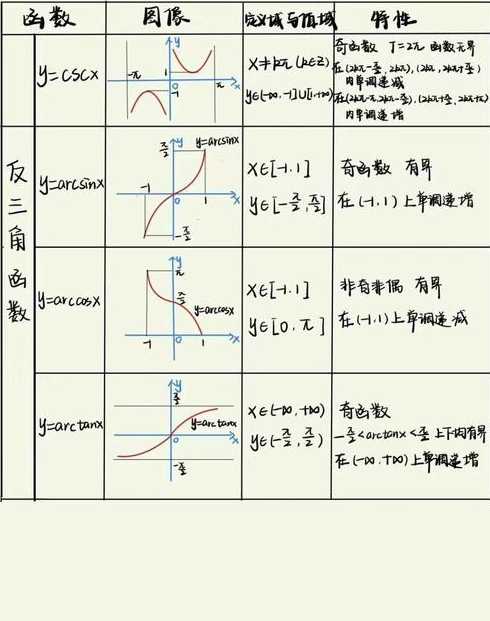 函数 图像 定义域与值域 特性
y=cscx
y
-π 1
-1 π x
x≠kπ(k∈Z)
y∈(-∞,-1]∪[1,+∞)
奇函数 T=2π 函数无界
在(2kπ-π/2,2kπ),(2kπ,2kπ+π/2)
内单调递减
在(2kπ-π,2kπ-π/2),(2kπ+π/2,2kπ+π)
内单调递增
反三角函数
y=arcsinx
π/2 y y=arcsinx
-1 0 1 x
-π/2
x∈[-1,1]
y∈[-π/2,π/2]
奇函数 有界
在(-1,1)上单调递增
y=arccosx
y
π
π/2 y=arccosx
-1 0 1 x
x∈[-1,1]
y∈[0,π]
非奇非偶 有界
在(-1,1)上单调递减
y=arctanx
y
π/2
y=arctanx
0 x
-π/2
x∈(-∞,+∞)
y∈(-π/2,π/2)
奇函数
-π/2<arctanx<π/2 上下均有界
在(-∞,+∞)上单调递增